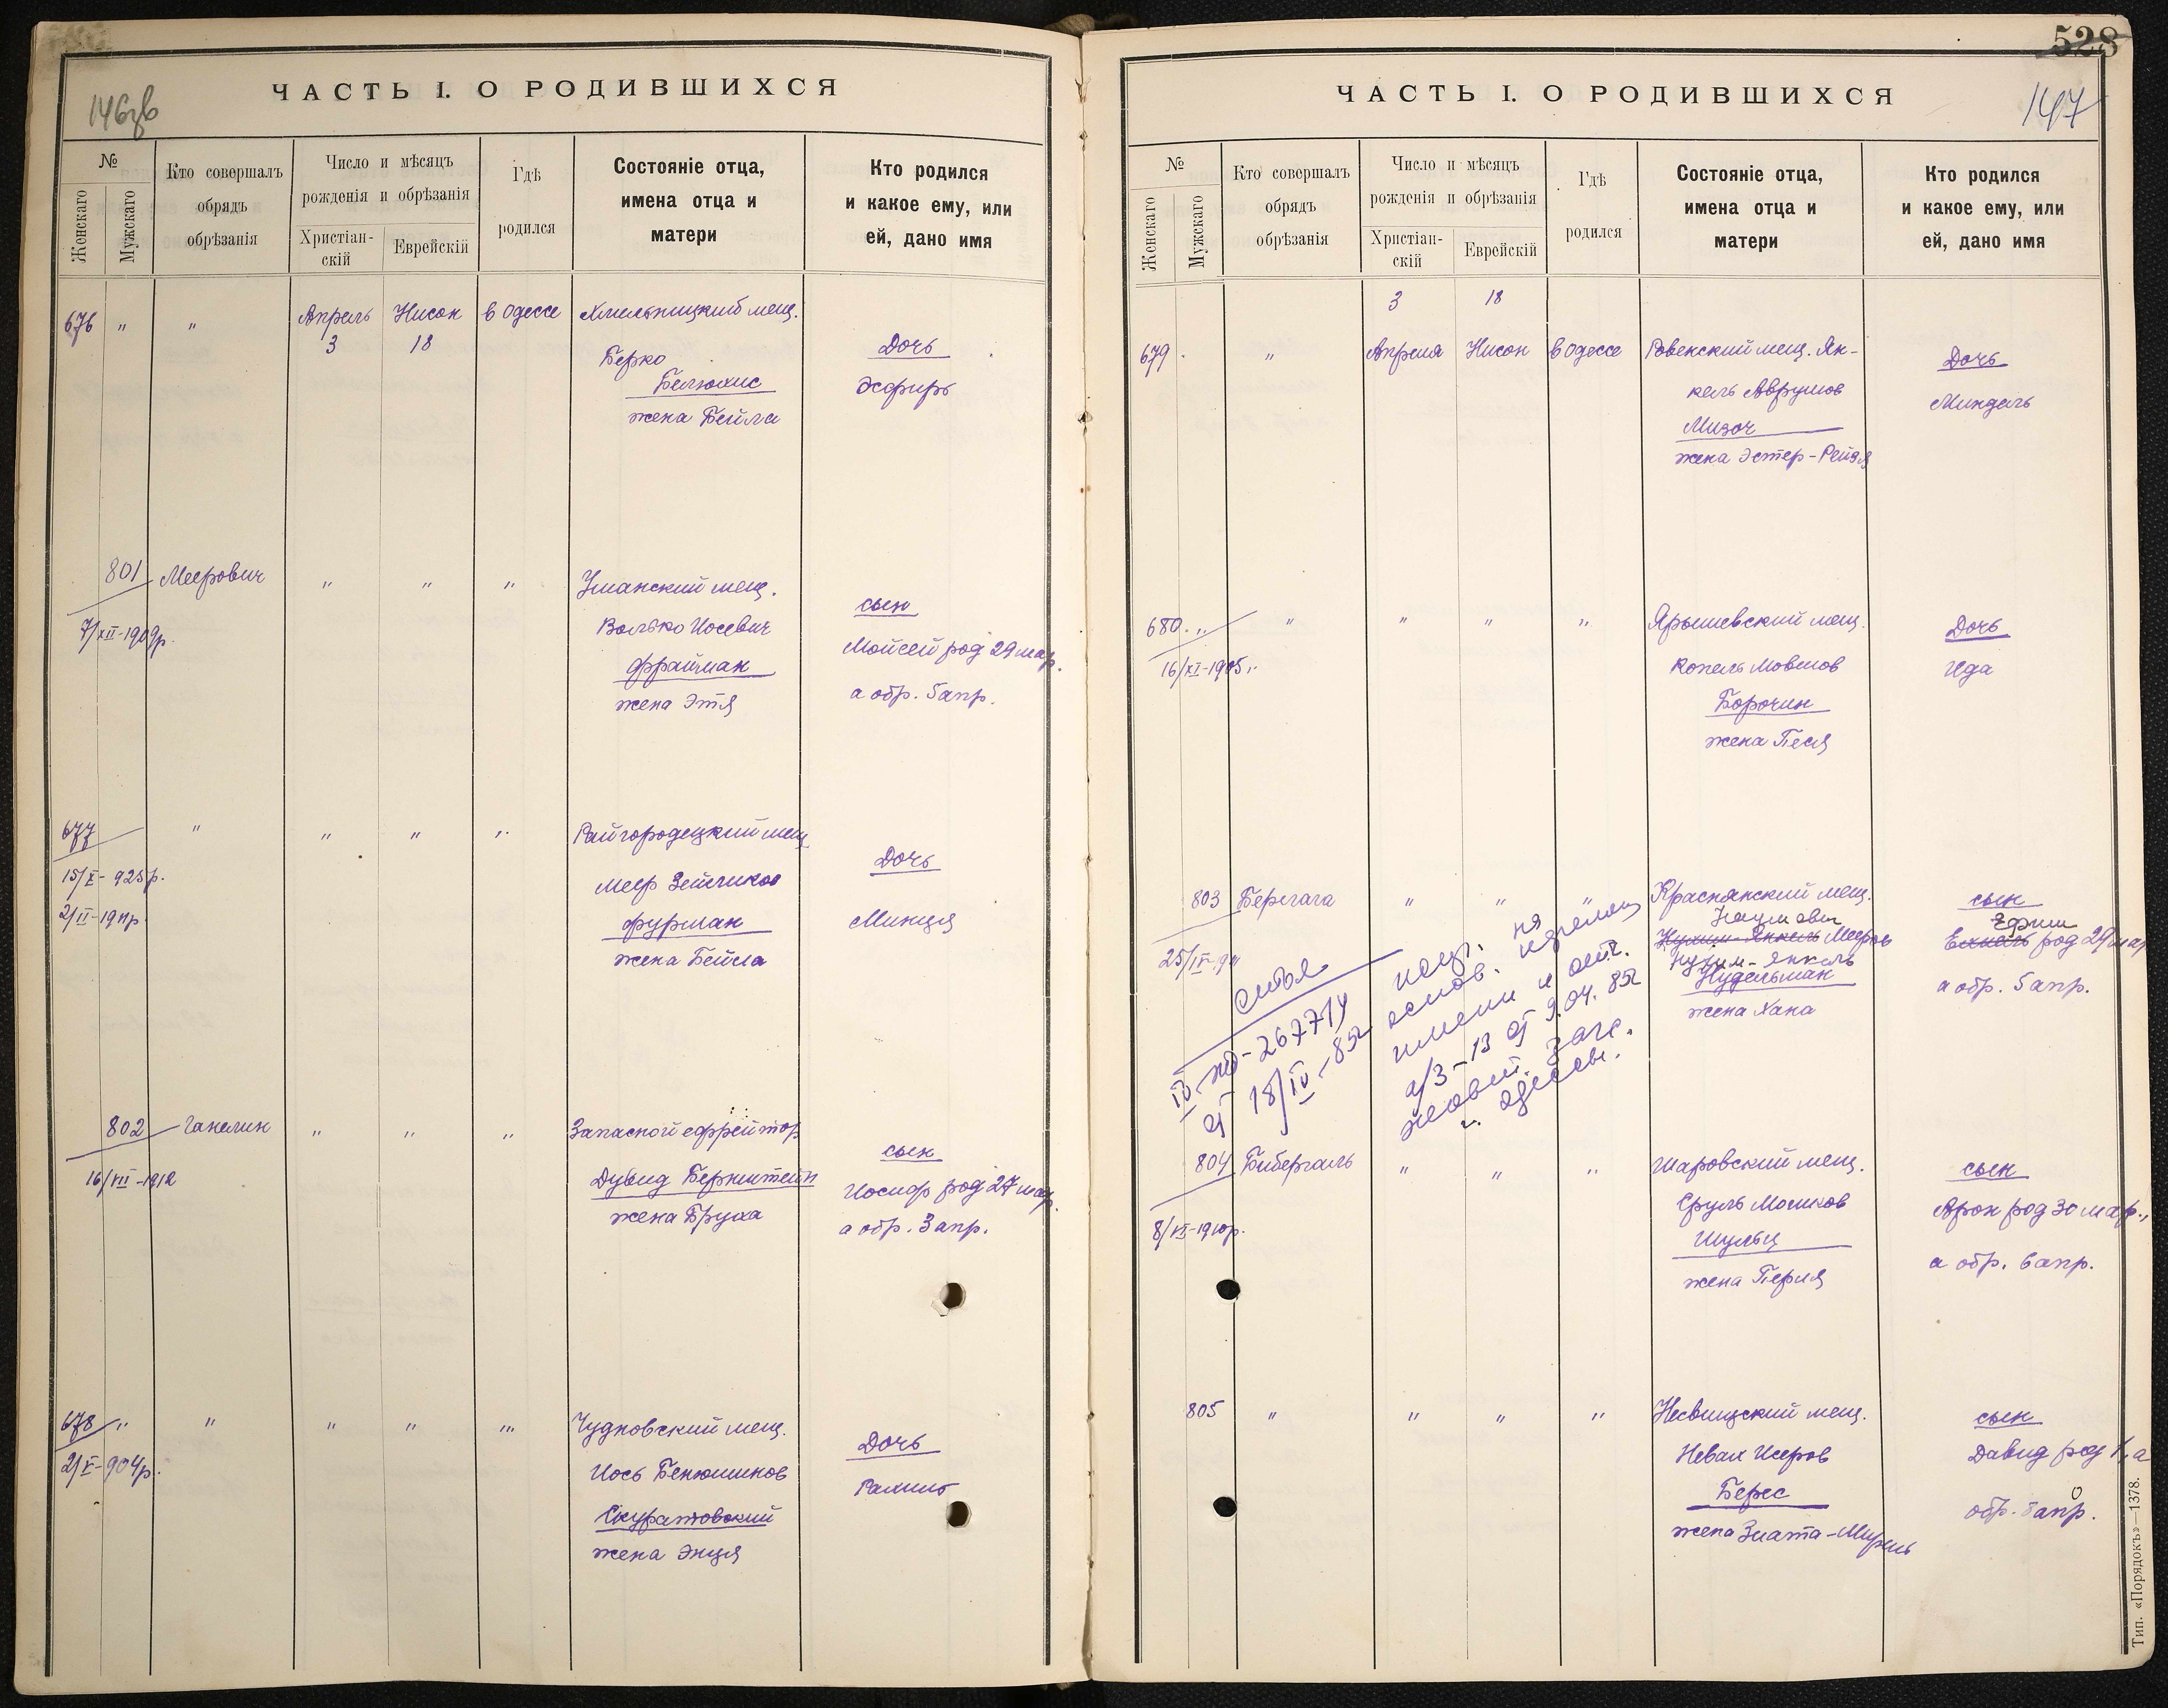 ЧАСТЬ I. О РОДИВШИХСЯ
№
Женскаго
Мужскаго
Кто совершалъ
обрядъ
обрѣзанія
Число и мѣсяцъ
рожденія и обрѣзанія
Христіан-
скій
Еврейскій
Гдѣ
родился
Состояніе отца,
имена отца и
матери
Кто родился
и какое ему, или
ей, дано имя
676 " " Апрель Нисон в Одессе Хмельницкий мещ.
3 18
Берко
жена Бейла
Дочь
Эсфирь
801 Меерович " " " Уманский мещ.
7/XII-1909р.
Волько Иосевич
Фрайман
жена Этя
сын
Мойсей род 29 мар.
а обр. 5 апр.
677 " " " " Райгородецкий мещ
15/X-925р.
2/II-19
Меер
Фурман
жена Бейла
Дочь
Минця
802 Ганелин " " " Запасной ефрейтор
16/VII-1912
Дувид Бернштейн
жена Бруха
сын
Иосиф род 27 мар.
а обр. 3 апр.
678 " " " " " Чудновский мещ.
2/X-904р.
Иось Бенюминов
Скуратовский
жена Энця
Дочь
Рахиль
528
147
ЧАСТЬ I. О РОДИВШИХСЯ
№
Женскаго
Мужскаго
Кто совершалъ
обрядъ
обрѣзанія
Число и мѣсяцъ
рожденія и обрѣзанія
Христіан-
скій
Еврейскій
Гдѣ
родился
Состояніе отца,
имена отца и
матери
Кто родился
и какое ему, или
ей, дано имя
3 18
679 " Апреля Нисон в Одессе Ровенский мещ. Ян-
кель Аврумов
Мизоч
жена Эстер-Рейзя
Дочь
Миндель
680 " " " " " Ярышевский мещ.
16/XI-1905г.
Копель Мовшов
Борочин
жена Песя
Дочь
Ида
803 " " " Краснянский мещ.
25/IV-
Наумович
Нухим-Янкель Мееров
Нухим-Янкель
Нудельман
жена Хана
сын
Ефим
род 29 мар
а обр. 5 апр.
IV-ЖД-267714
от 18/IV-85г
на
основ.
имени и отч.
а/З-13 от 9.04.85г
Жовт. загс.
г. Одессы.
804 Биберталь " " " Шаровский мещ.
8/VI-1910р.
Сруль Мошков
Шульц
жена Перля
сын
Арон род 30 мар.,
а обр. 6 апр.
805 " " " " Несвицский мещ.
Невах Исеров
Берес
жена Злата-Мирель
сын
Давид род 1, а
обр. 8 апр.
Тип. «Порядокъ»—1378.